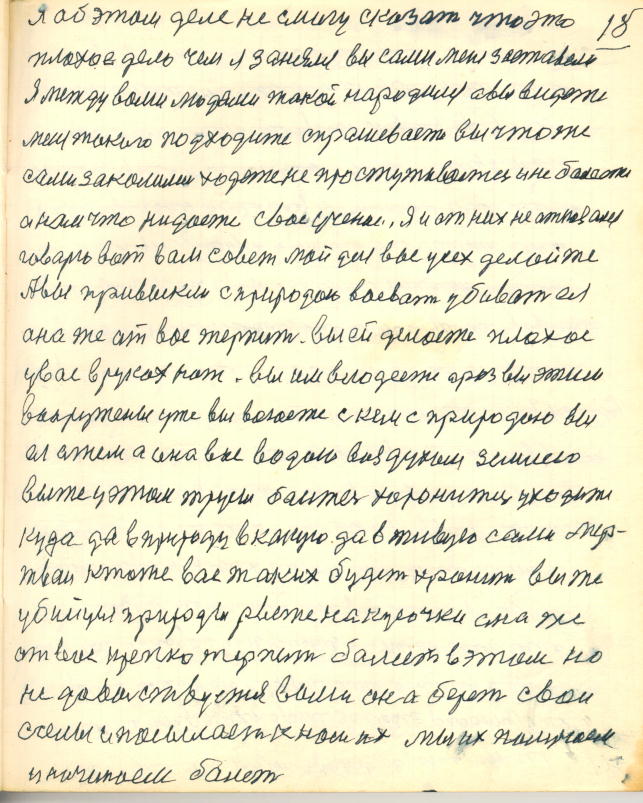 Я об этом деле не смогу сказат что это 18
плохое дело чем я занелся вы сами меня заставели
Я между вами людями такой народился а вы видете
меня такого подходите спрашеваете вы что же
сами заколились ходете не простуживаетес и не болеете
а нам что нидаете свое учение, Я и от них не отказался
говарю вот вам совет мой для вас усех делайте
А вы привыкли с природою воеват убиват ея
она же от вас терпит. вы ей делаете плохое
у вас в руках нож. вы им владеете а раз вы этим
вооружены уже вы воюете с кем с природою вы
ея этем а она вас водою воздухом землею
вы же у этом трусы боитес хоронитес уходите
куда да в природу в какую. да в живую сами мер-
тваи кто же вас таких будет хранит вы же
убийцы природы рвете на кусочки она же
от вас крепко терпит болеет в этом но
не доволствуется вами она берет свои
силы и посылает к нам их мы их получаем
и начинаем болет